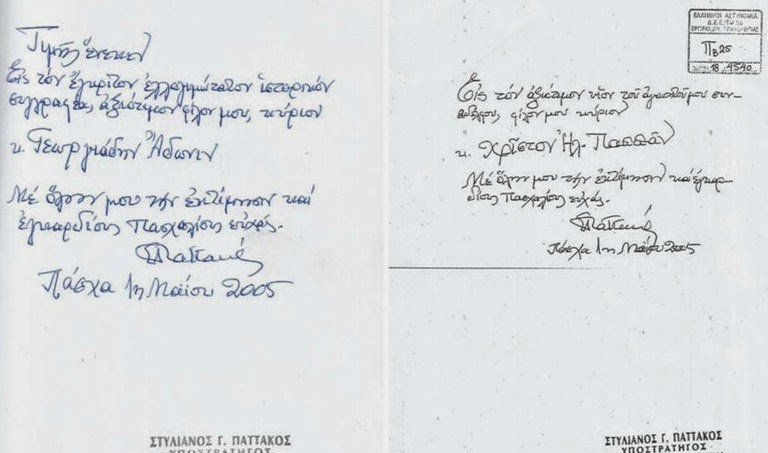 Τιμῆς ἕνεκεν
Εἰς τὸν ἔγκριτον ἐλλογιμώτατον ἱστορικόν
συγγραφέα, ἀξιότιμον φίλον μου, κύριον
κ. Γεωργιάδην Ἄδωνιν
Μέ ὅλην μου τὴν ἐκτίμησιν καί
ἐγκαρδίους Πασχαλίους εὐχάς.
Παττακός
Πάσχα 1η Μαΐου 2005
ΣΤΥΛΙΑΝΟΣ Γ. ΠΑΤΤΑΚΟΣ
ΥΠΟΣΤΡΑΤΗΓΟΣ
ΕΛΛΗΝΙΚΗ ΑΣΤΥΝΟΜΙΑ
Πβ 25
18/4540
Εἰς τόν ἀξιότιμον υἱον τοῦ ἀγαπητοῦ μου συν-
αδέλφου, φίλον μου κύριον
κ. Χρῖστον Ἠλ. Παππᾶν
Μέ ὅλην μου τήν ἐκτίμησιν καί ἐγκαρ-
δίους Πασχαλίους εὐχάς.
Παττακός
Πάσχα 1η Μαΐου 2005
ΣΤΥΛΙΑΝΟΣ Γ. ΠΑΤΤΑΚΟΣ
ΥΠΟΣΤΡΑΤΗΓΟΣ